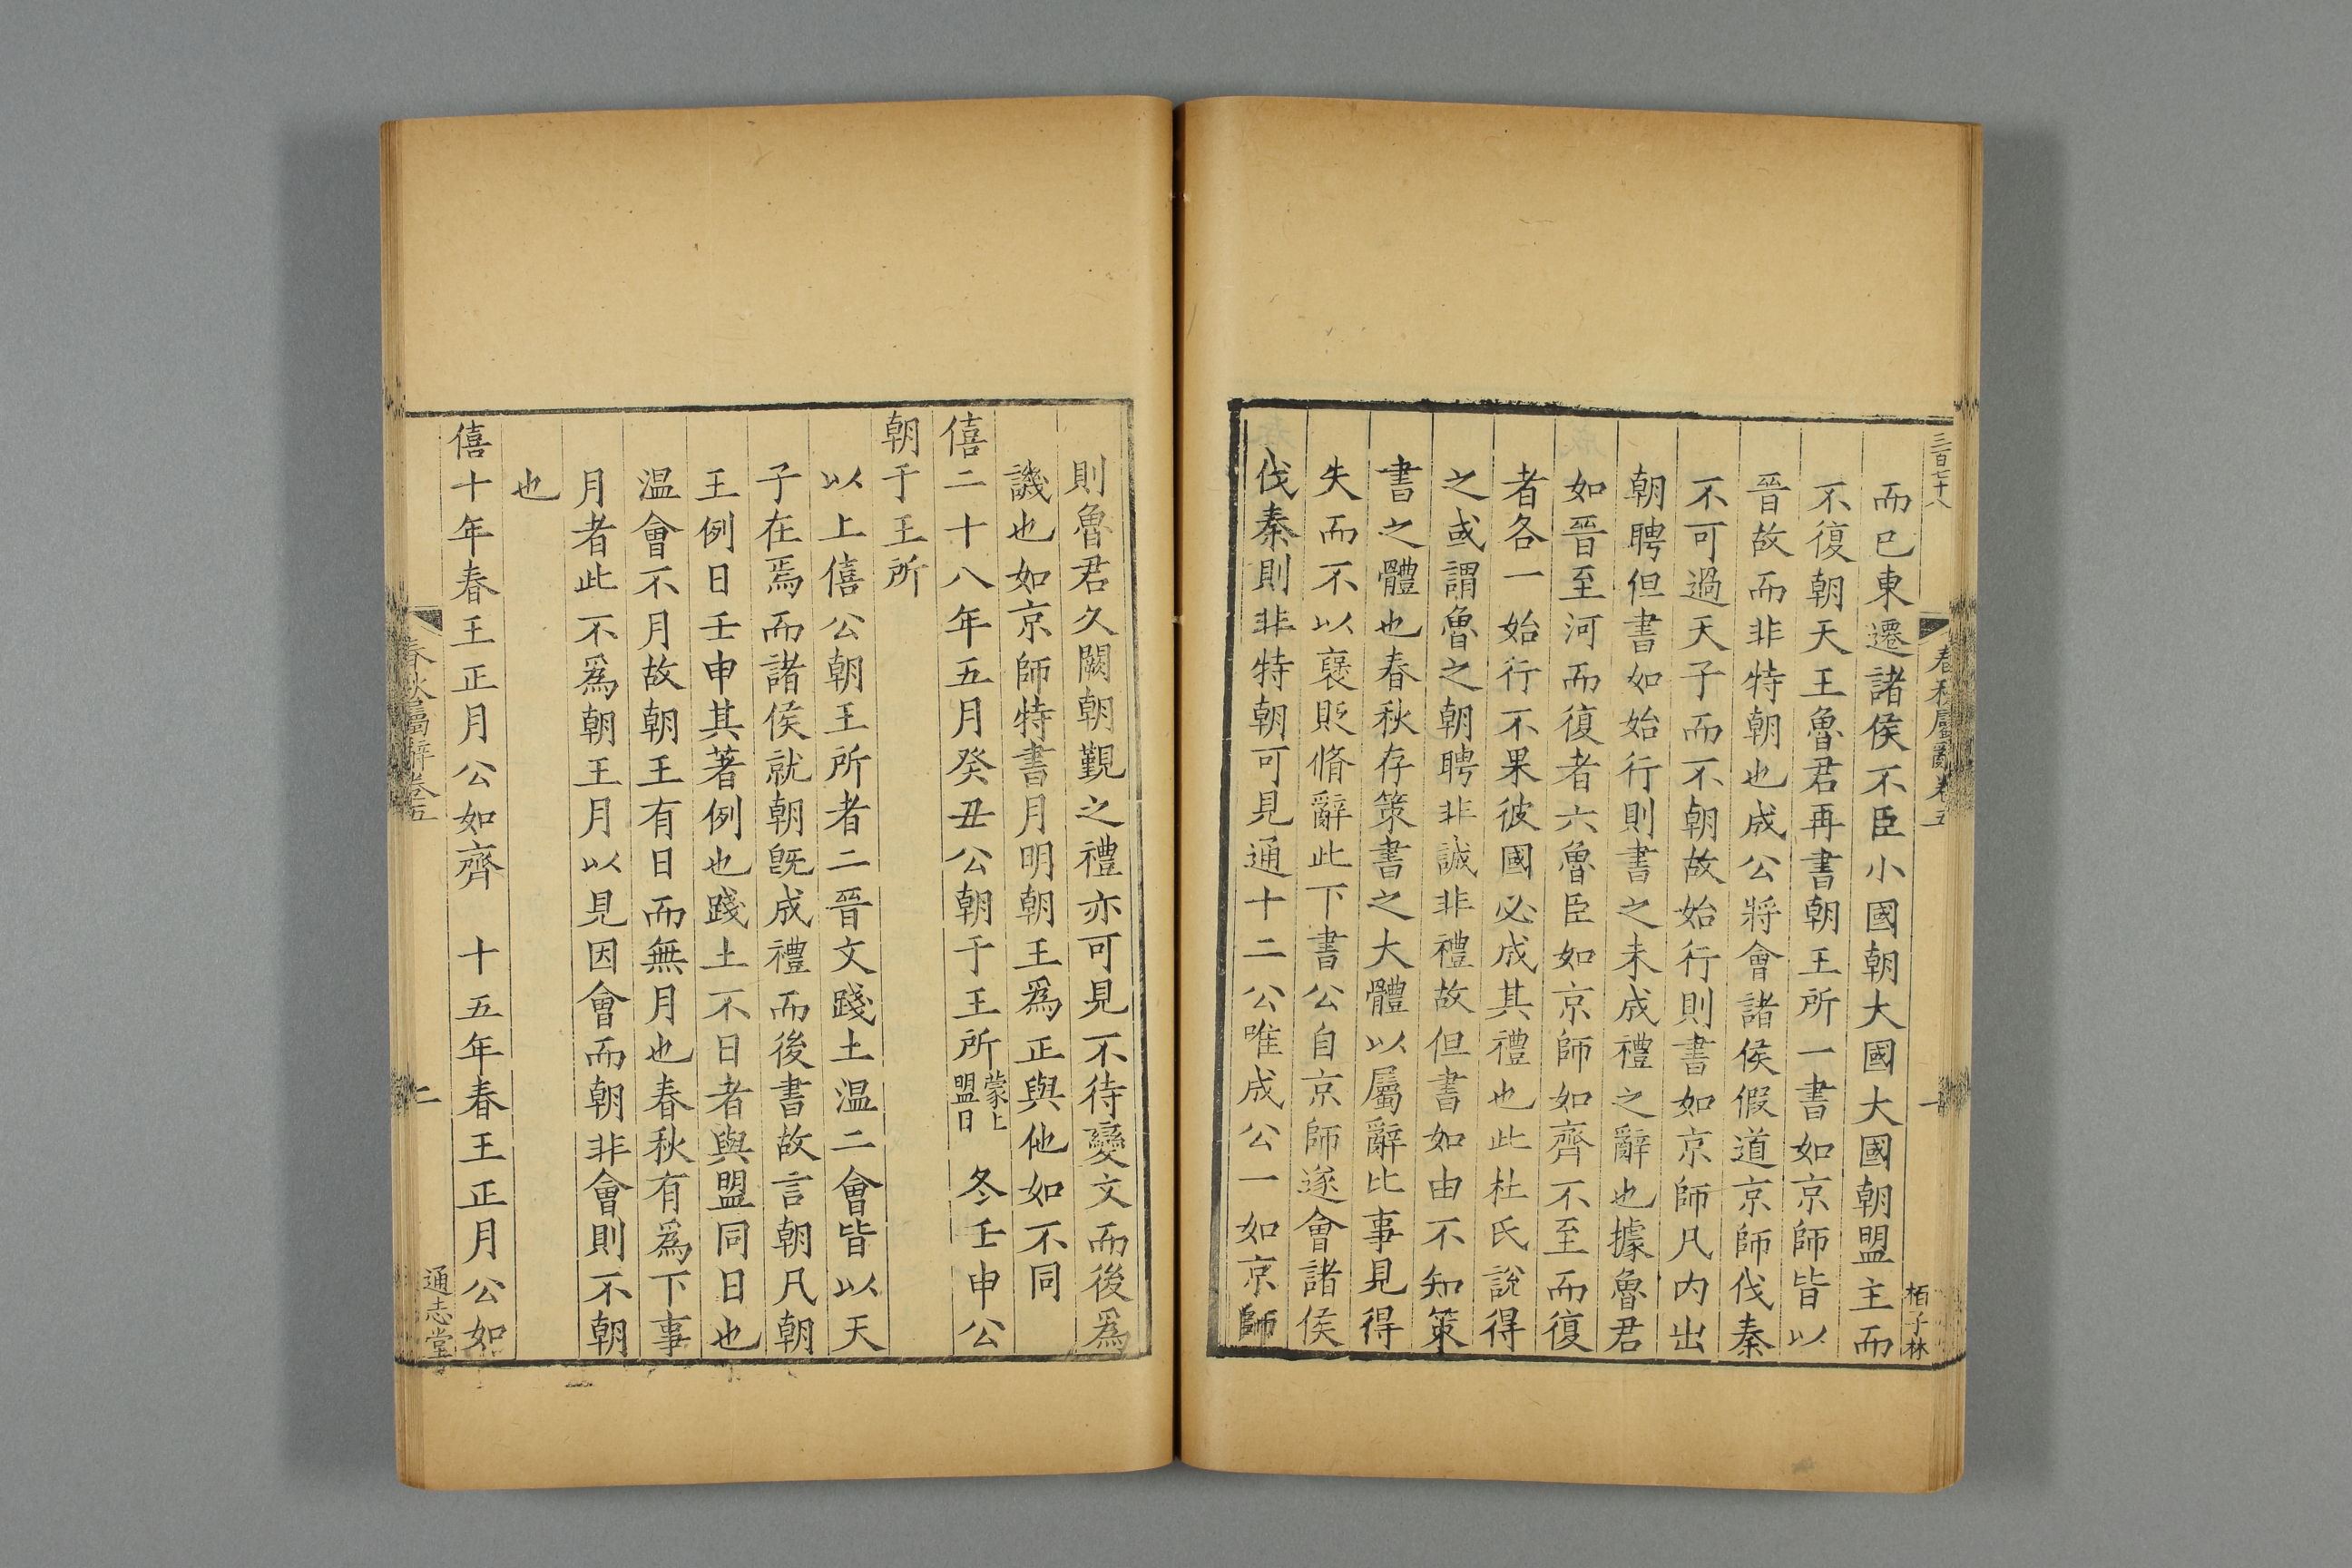 三百七十八
春秋屬辭卷五
一
栢子林
而已東遷諸侯不臣小國朝大國大國朝盟主而
不復朝天王魯君再書朝王所一書如京師皆以
晉故而非特朝也成公將會諸侯假道京師伐秦
不可過天子而不朝故始行則書如京師凡内出
朝聘但書如始行則書之未成禮之辭也據魯君
如晉至河而復者六魯臣如京師如齊不至而復
者各一始行不果彼國必成其禮也此杜氏說得
之或謂魯之朝聘非誠非禮故但書如由不知策
書之體也春秋存策書之大體以屬辭比事見得
失而不以襃貶脩辭此下書公自京師遂會諸侯
伐秦則非特朝可見通十二公唯成公一如京師
則魯君久闕朝覲之禮亦可見不待變文而後爲
譏也如京師特書月明朝王爲正與他如不同
僖二十八年五月癸丑公朝于王所蒙上盟日 冬壬申公
朝于王所
以上僖公朝王所者二晉文踐土温二會皆以天
子在焉而諸侯就朝旣成禮而後書故言朝凡朝
王例日壬申其著例也踐土不日者與盟同日也
温會不月故朝王有日而無月也春秋有爲下事
月者此不爲朝王月以見因會而朝非會則不朝
也
僖十年春王正月公如齊 十五年春王正月公如
春秋屬辭卷五
二
通志堂